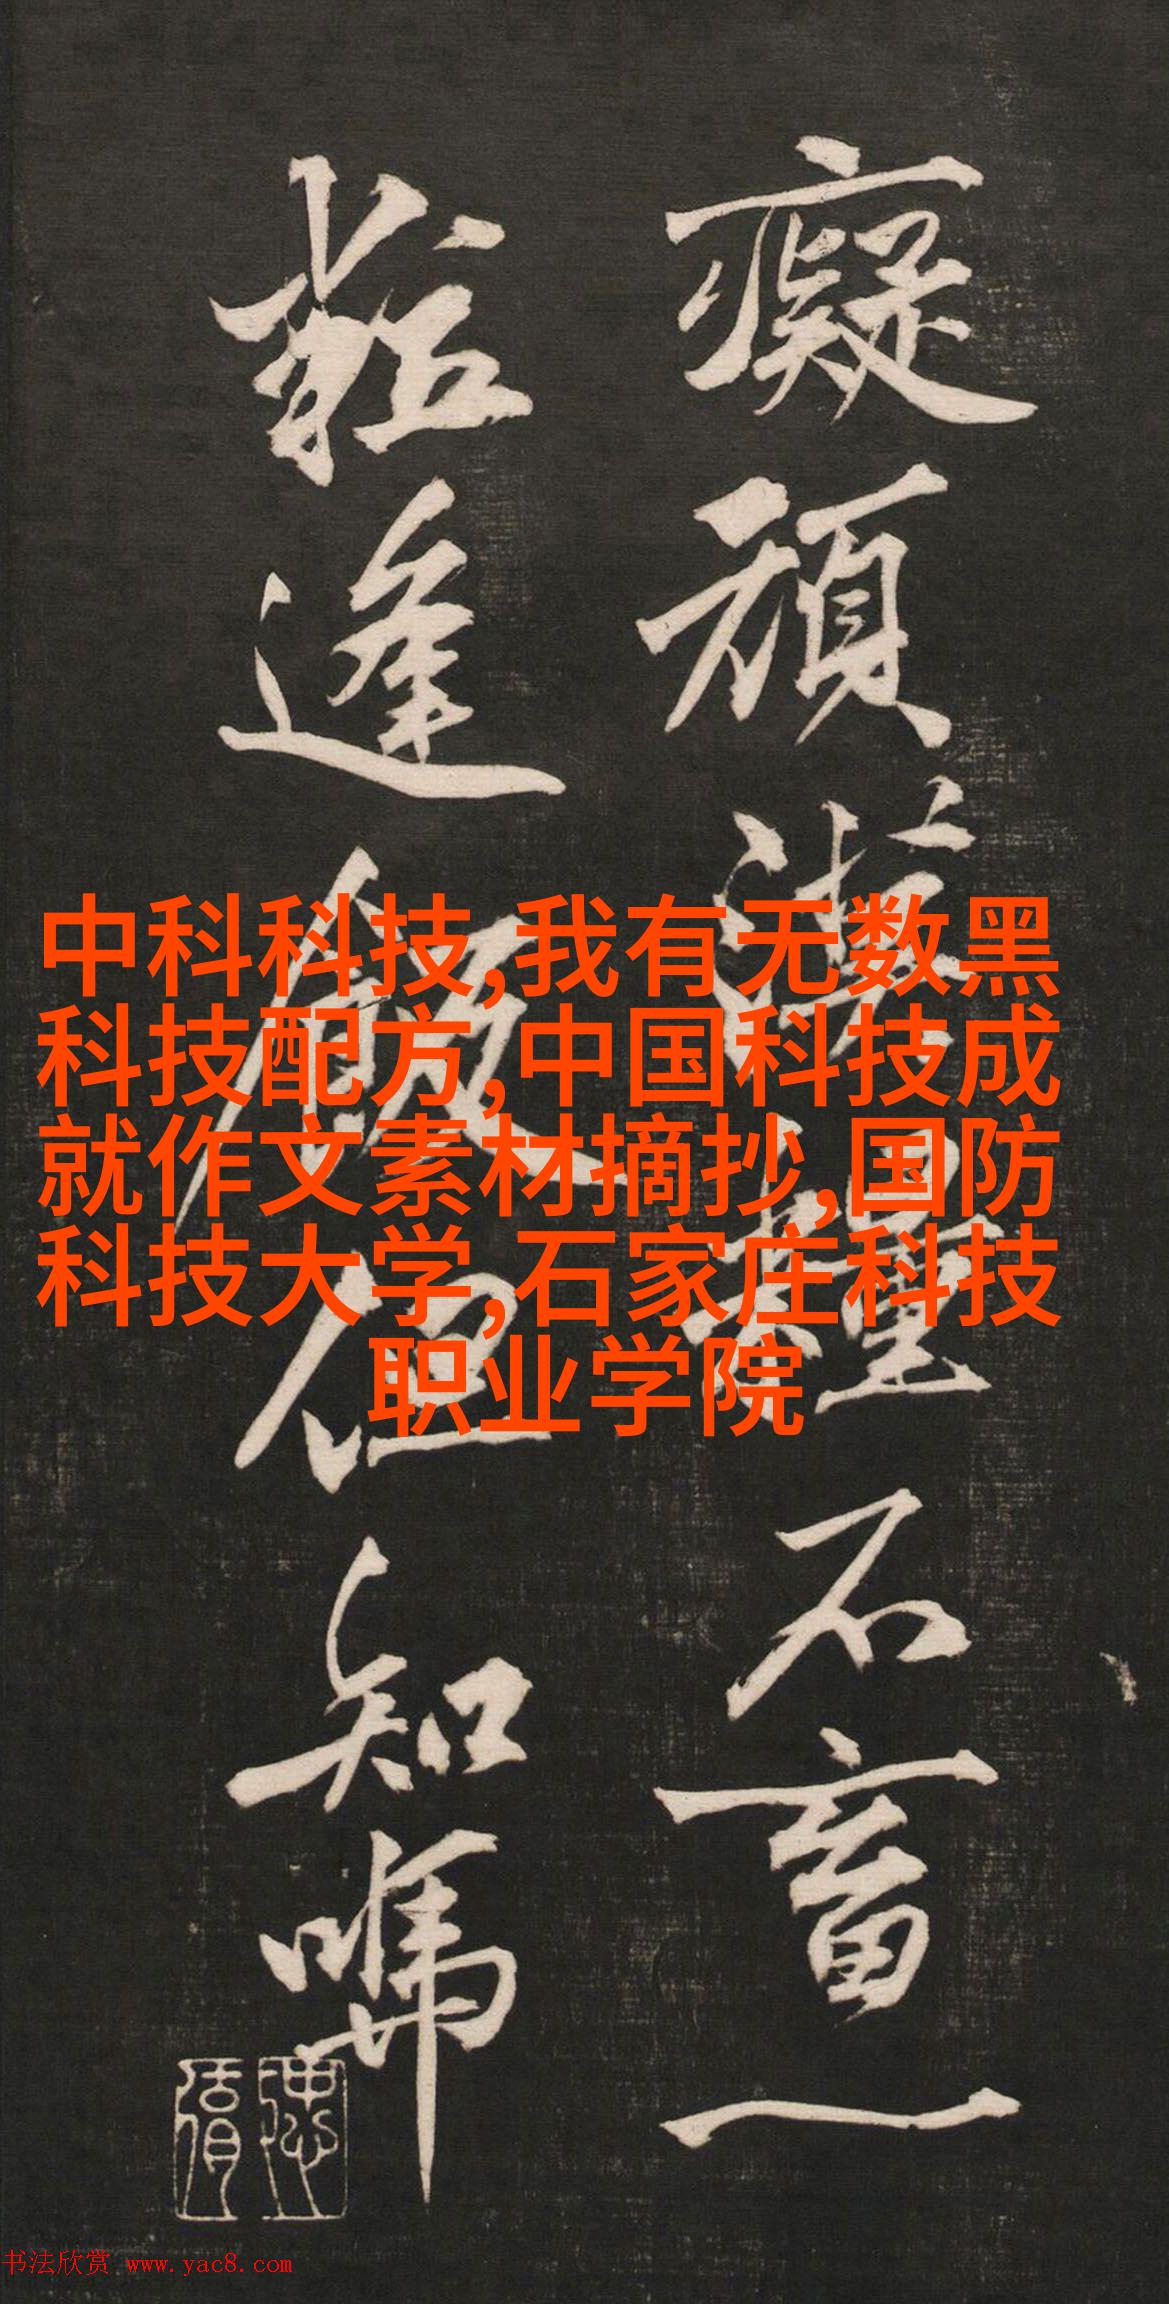 癡頑漢種石畜一
粒逢飯但知嚼
中科科技,我有无数黑
科技配方,中国科技成
就作文素材摘抄,国防
科技大学,石家庄科技
职业学院
书法欣赏 www.yac8.com